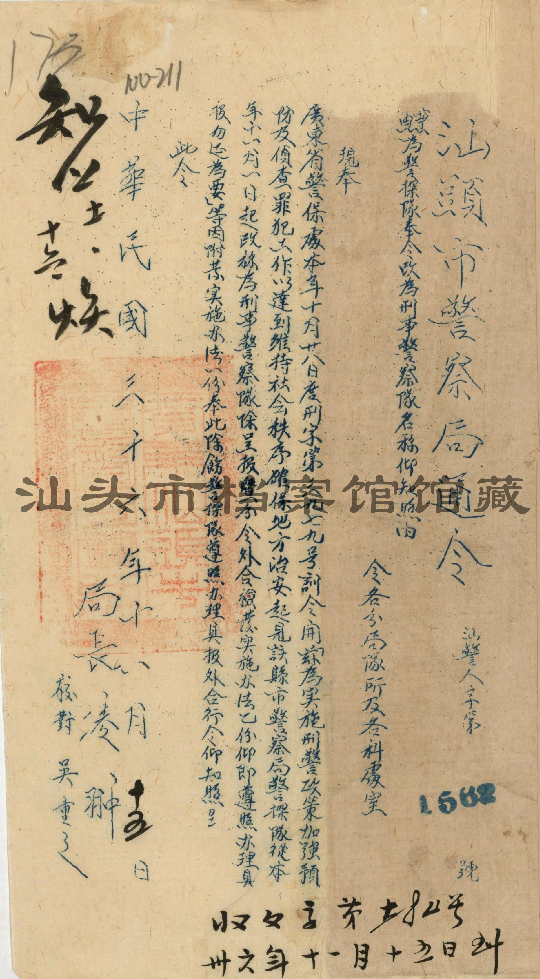 汕頭市警察局通令
汕警人字第
1562
號
為警探隊奉令改為刑事警察隊名称仰知照由
令各分局隊所及各科處室
現奉
廣東省警保處本年十月廿八日度刑字第 九号訓令開「茲為实施刑警政策加強
份及偵查罪犯工作以達到維持社会秩序確保地方治安起見該縣市警察局警探隊從本
年十一月一日起改称為刑事警察隊除呈报 令外合 实施办法乙份仰即遵照办理具
报勿延為要」等因附 实施办法一份奉此除飭警探隊遵照办理具报外合行令仰知照！
此令
中華民國三十六年十一月十五日
局長凌
校对 吳重
175
100-211
知
收文字第 号
卅六年十一月十五日到
汕头市档案馆馆藏